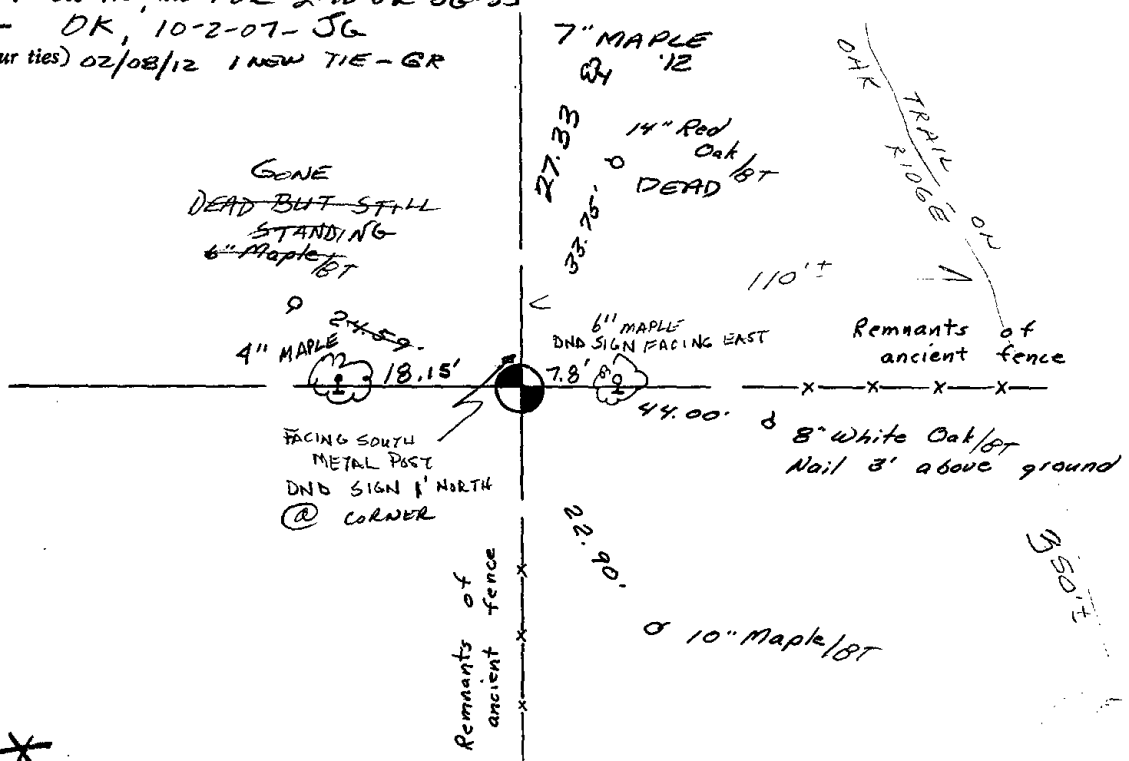 OK, 10-2-07-JG
ur ties) 02/08/12 1 NEW TIE-GR
7" MAPLE
'12
27.33
14" Red
Oak/BT
DEAD
33.75'
OAK TRAIL ON
RIDGE
GONE
DEAD BUT STILL
STANDING
6" Maple/BT
24.59
110'±
4" MAPLE
18.15'
6" MAPLE
DND SIGN FACING EAST
7.8'
Remnants of
ancient fence
44.00'
8" White Oak/BT
Nail 3' above ground
FACING SOUTH
METAL POST
DND SIGN 1' NORTH
@ CORNER
22.90'
350'±
Remnants of
ancient fence
10" Maple/BT